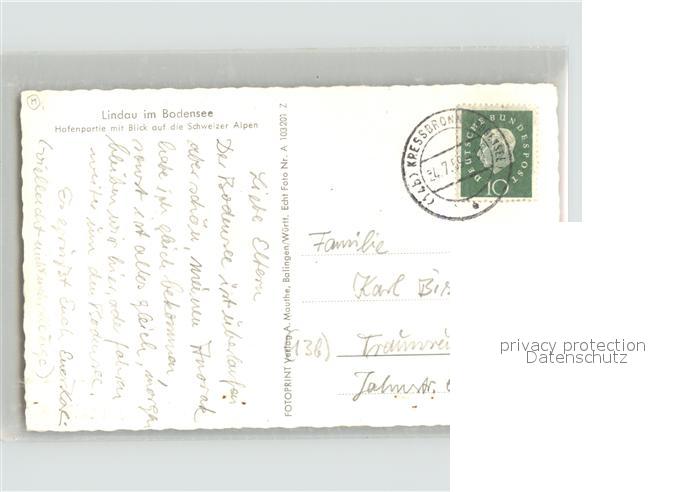 Lindau im Bodensee
Hafenpartie mit Blick auf die Schweizer Alpen
Liebe Eltern
Der Bodensee ist überlaufen
aber schön, meinen Anorak
habe ich gleich bekommen,
sonst ist alles gleich, morgen
bleiben wir hier, oder fahren
weiter um den Bodensee.
(vielleicht
Es grüßt Euch Euer
FOTOPRINT Verlag A. Mauthe, Balingen/Württ. Echt Foto Nr. A 103201 Z
(14b) KRESSBRONN
DEUTSCHE BUNDESPOST
10
Familie
Karl
(13b)
privacy protection
Datenschutz